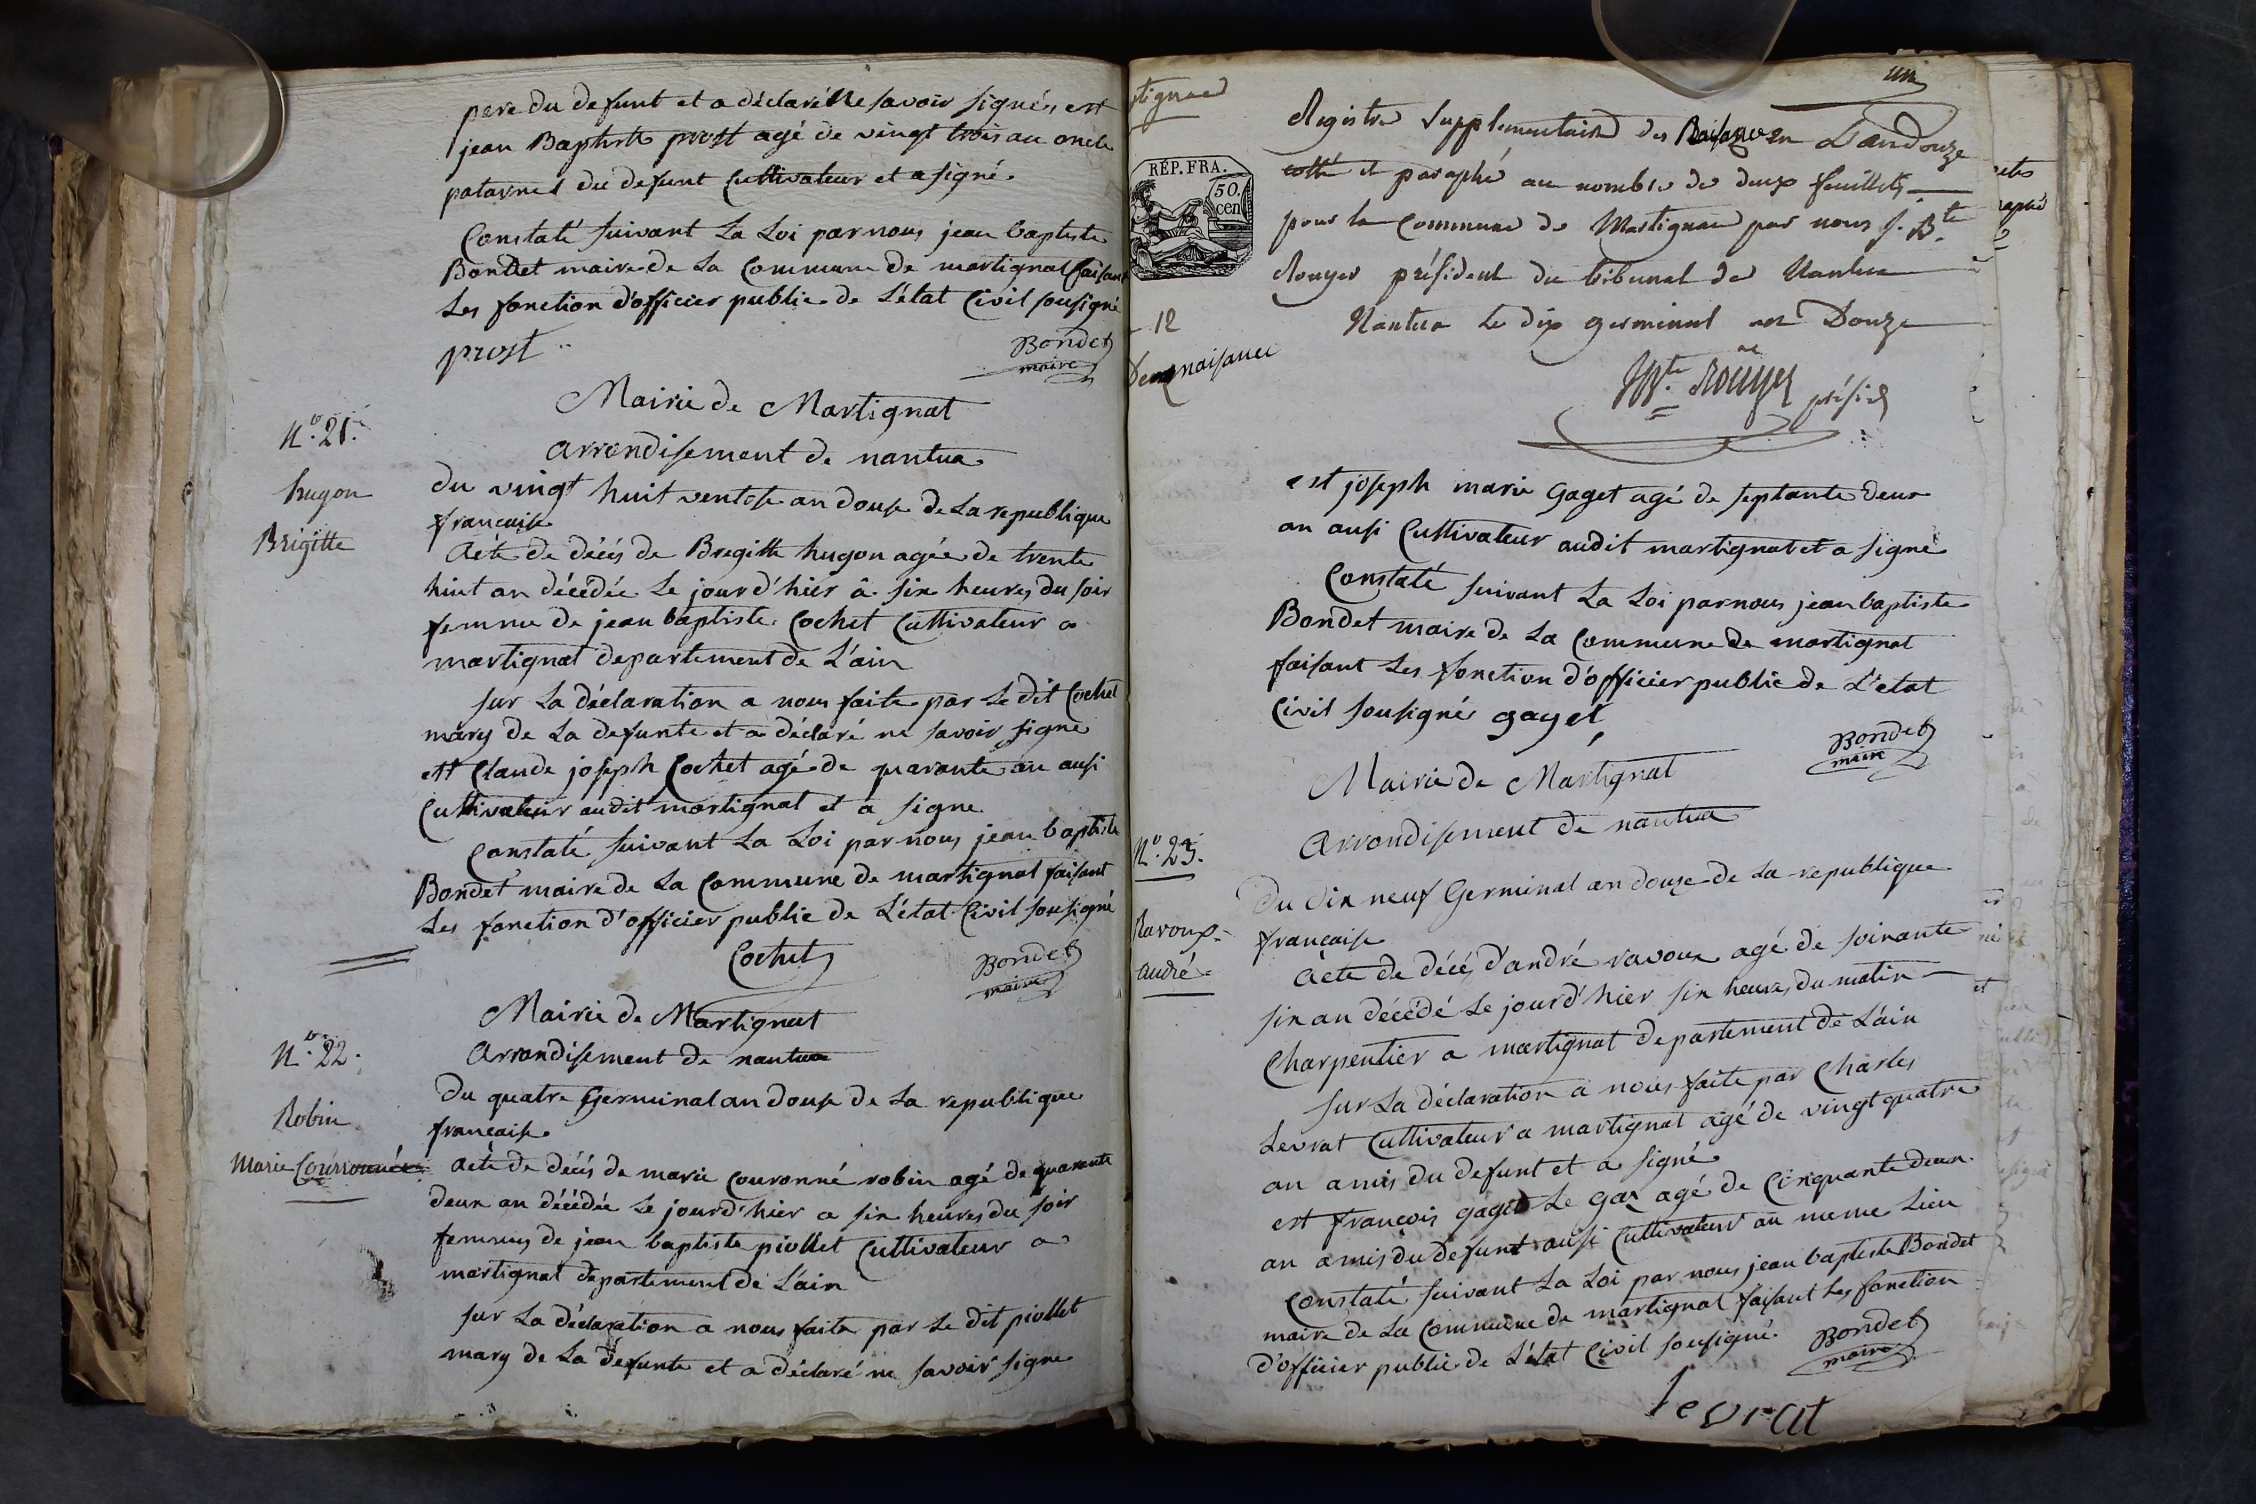 pere du defunt et a déclaré Ne savoir signér, est
jean Baptiste prost agé de vingt trois an oncle
paternel du defunt Cultivateur et a signé.
Constaté suivant La Loi par nous jean baptiste
Bondet maire de La Commune de martignat faisant
Les fonction d'officier public de L'état Civil sousigné
prost
Bondet
maire
Mairie de Martignat
arrondisement de nantua
N.º 21.
hugon
Brigitte
du vingt huit ventose an douse de La republique
francaise
Acte de décés de Bregitte hugon agée de trente
huit an décédée Le jour d'hier à six heures du soir
femme de jean baptiste Cochet Cultivateur a
martignat departement de L'ain
sur La déclaration a nous faite par Le dit Cochet
mary de La defunte et a déclaré ne savoir signé
est Claude joseph Cochet agé de quarante an ausi
Cultivateur audit martignat et a signe
Constaté suivant La Loi par nous jean baptiste
Bondet maire de La Commune de martignat faisant
Les fonction d'officier public de L'état Civil sousigné
Cochet
Bondet
maire
Mairie de Martignat
Arrondisement de nantua
N.º 22.
Robin
Marie Couronnée
Du quatre Germinal an douse de La republique
francaise
acte de décés de marie Couronné robin agé de quarante
deux an décédée Le jour d'hier a six heures du soir
femme de jean baptiste piollet Cultivateur a
martignat departement de L'ain
sur La déclaration a nous faite par Le dit piollet
mary de La defunte et a déclaré ne savoir signe
un
tignac
RÉP. FRA.
50.
cen
12
naisance
Registre supplementaire des Naisance en L'an Douze
cotté et paraphé au nombre de deux feuillets
pour la Commune de Martignac par nous J. B.te
Rouyer président du tribunal de Nantua
Nantua Le dix germinal an Douze
JB.te Rouyer
présid
est joseph marie Gaget agé de septante deux
an ausi Cultivateur audit martignat et a signé
Constaté suivant La Loi par nous jean baptiste
Bondet maire de La Commune de martignat
faisant Les fonction d'officier public de L'etat
Civil sousigné gaget
Bondet
maire
Mairie de Martignat
Arrondisement de nantua
N.º 23.
Ravoux
André
Du Dix neuf Germinal an douze de La republique
francaise
Acte de décés d'andré ravoux agé de soixante
six an décédé Le jour d'hier six heures du matin
Charpentier a martignat departement de L'ain
sur La déclaration a nous faite par Charles
Levrat Cultivateur a martignat agé de vingt quatre
an amis du defunt et a signé
est francois gaget Le gaz agé de Cinquante deux
an amis du defunt ausi Cultivateur au meme Lieu
Constaté suivant La Loi par nous jean baptiste Bondet
maire de La Commune de martignat faisant Les fonction
d'officier public de L'état Civil sousigné
Bondet
maire
levrat